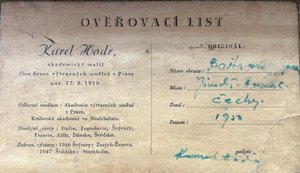 OVĚŘOVACÍ LIST
Karel Hodr,
akademický malíř
člen Svazu výtvarných umělců v Praze
nar. 17. 8. 1910
Odborné studium: Akademie výtvarných umění
v Praze,
Královská akademie ve Stockholmu.
Studijní cesty: Italie, Jugoslavie, Švýcary,
Francie, Alžír, Dánsko, Švédsko.
Zahran. výstavy: 1946 Švýcary: Zurych-Ženeva.
1947 Švédsko: Stockholm.
ORIGINÁL:
Název obrazu:
Místo:
Země: Čechy
Datum: 1950
podpis
Karel Hodr